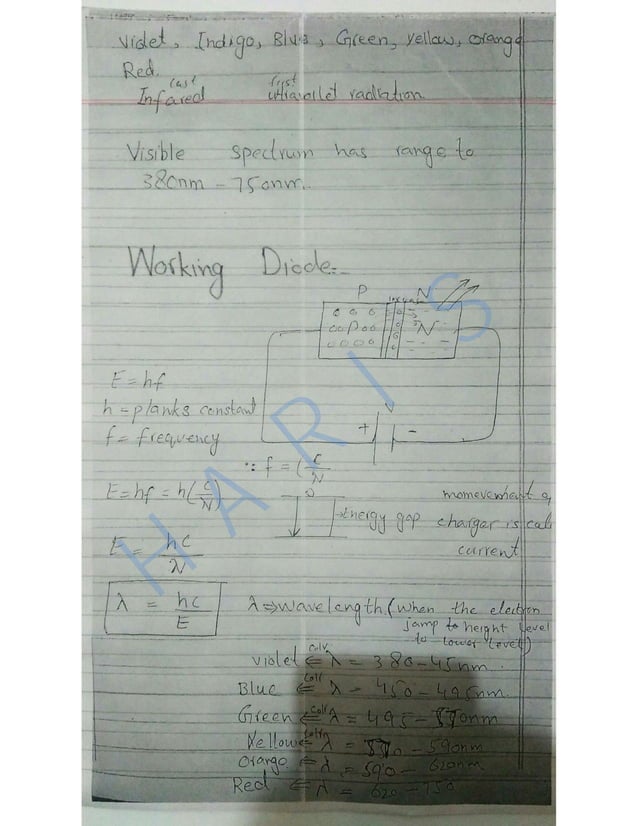 Violet, Indigo, Blue, Green, yellow, orange
Red.
last first
Infared ultraviolet radiation
Visible spectrum has range to
380nm - 750nm.
Working Diode:-
P N
P N
V
+ -
E = hf
h = planks constant
f = frequency
∵ f = (c/λ
E = hf = h(c/λ)
→ Energy gap
charger is
current
E = hc/λ
λ = hc/E
λ ⇒ wavelength (when the electron
jump to height level
to lower level)
violet ⇐ λ = 380 - 45nm
Blue ⇐ λ = 450 - 495nm.
Green ⇐ λ = 495 - 570nm
Yellow ⇐ λ = 570 - 590nm
Orange ⇐ λ = 590 - 620nm
Red ⇐ λ = 620 - 750
HARIS